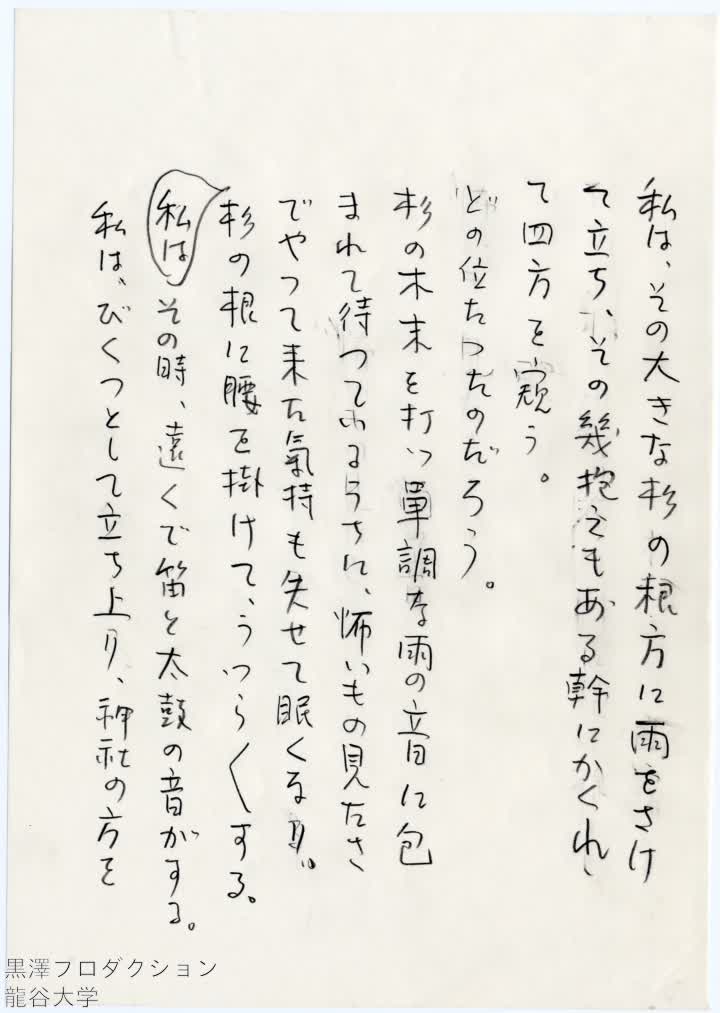 私は、その大きな杉の根方に雨をさけ
て立ち、その幾抱えもある幹にかくれ
て四方を窺う。
どの位たったのだろう。
杉の木末を打つ單調な雨の音に包
まれて待つてゐるうちに、怖いもの見たさ
でやつて来た気持も失せて眠くなり、
杉の根に腰を掛けて、うつら〱する。
私はその時、遠くで笛と太鼓の音がする。
私は、びくつとして立ち上り、神社の方を
黒澤プロダクション
龍谷大学